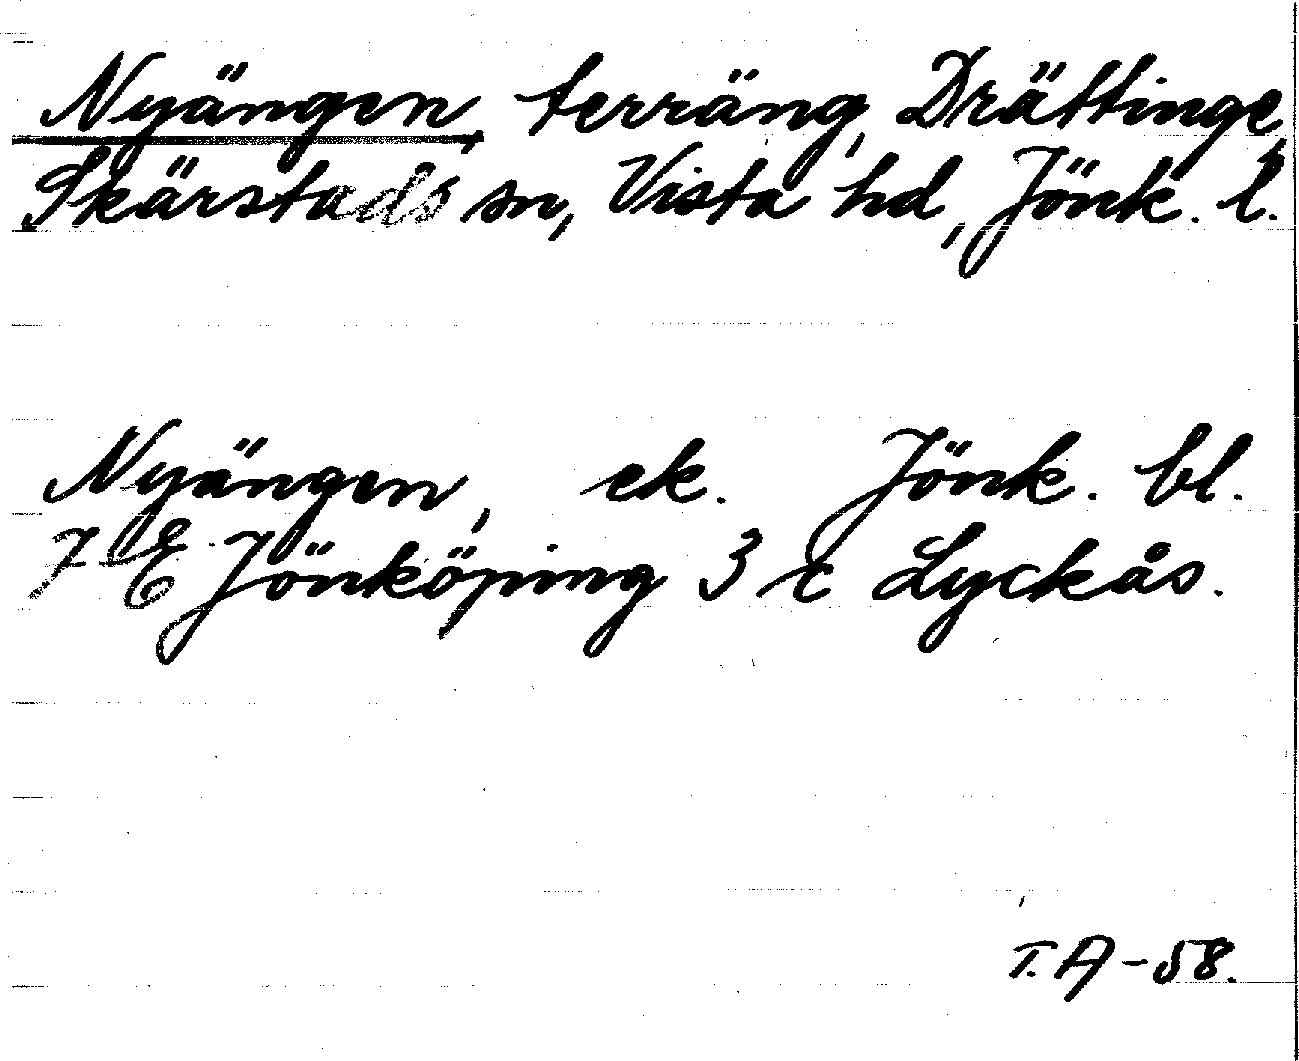 Nyängen, terräng, Drättinge,
Skärstads sn, Vista hd, Jönk. l.
Nyängen, ek. Jönk. bl.
7 E Jönköping 3 c Lyckås.
T. A-58.